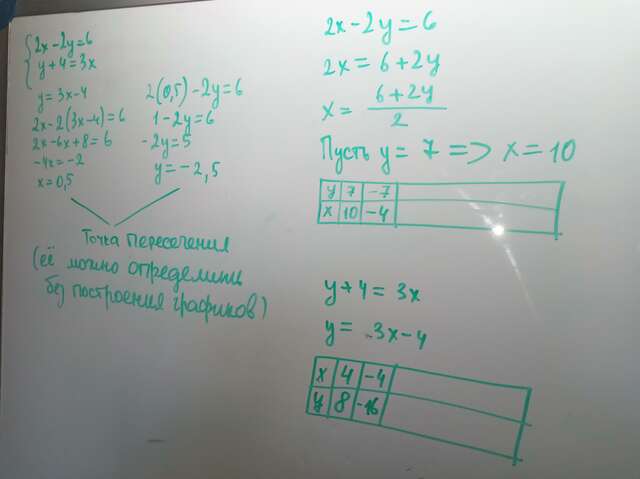 2x-2y=6
y+4=3x
y=3x-4
2x-2(3x-4)=6
2x-6x+8=6
-4x=-2
x=0,5
2(0,5)-2y=6
1-2y=6
-2y=5
y=-2,5
Точка пересечения
(её можно определить
без построения графиков)
2x-2y=6
2x=6+2y
x= 6+2y
2
Пусть y=7=>x=10
y 7 -7
x 10 -4
y+4=3x
y=3x-4
x 4 -4
y 8 -16